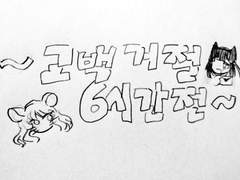 ~ 고백 거절
6시간 전 ~